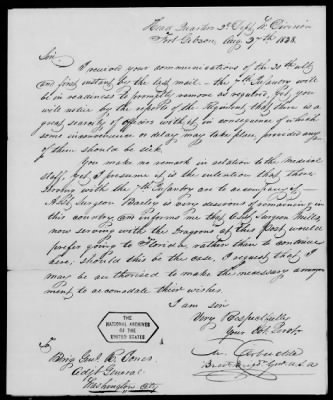 Head Quarters 2d Dept. W. Division
Fort Gibson, Aug 27th 1838.
Sir,
I received your communications of the 30th ulto
and first instant by the last mail – the 7th Infantry will
be in readiness to promptly remove as required, yet, you
will notice by the reports of the regiment, that there is a
great scarcity of officers with it, in consequence of which
some inconvenience or delay may take place, provided any
of them should be sick.
You make no remark in relation to the Medical
staff, yet, I presume it is the intention that those
serving with the 7th Infantry are to accompany it –
Asst Surgeon Bailey is very desirous of remaining in
this country and informs me that Asst Surgeon Mills
now serving with the Dragoons at this post would
prefer going to Florida, rather than to continue
here; should this be the case, I request that I
may be authorized to make the necessary arrange
ment to accomodate their wishes.
I am Sir
Very Respectfully
Your Obt Servt
M. Arbuckle
Brevt Brigr Genl U.S.A
To
Brig Genl R. Jones
Adjt General
Washington City
THE
NATIONAL ARCHIVES
OF THE
UNITED STATES